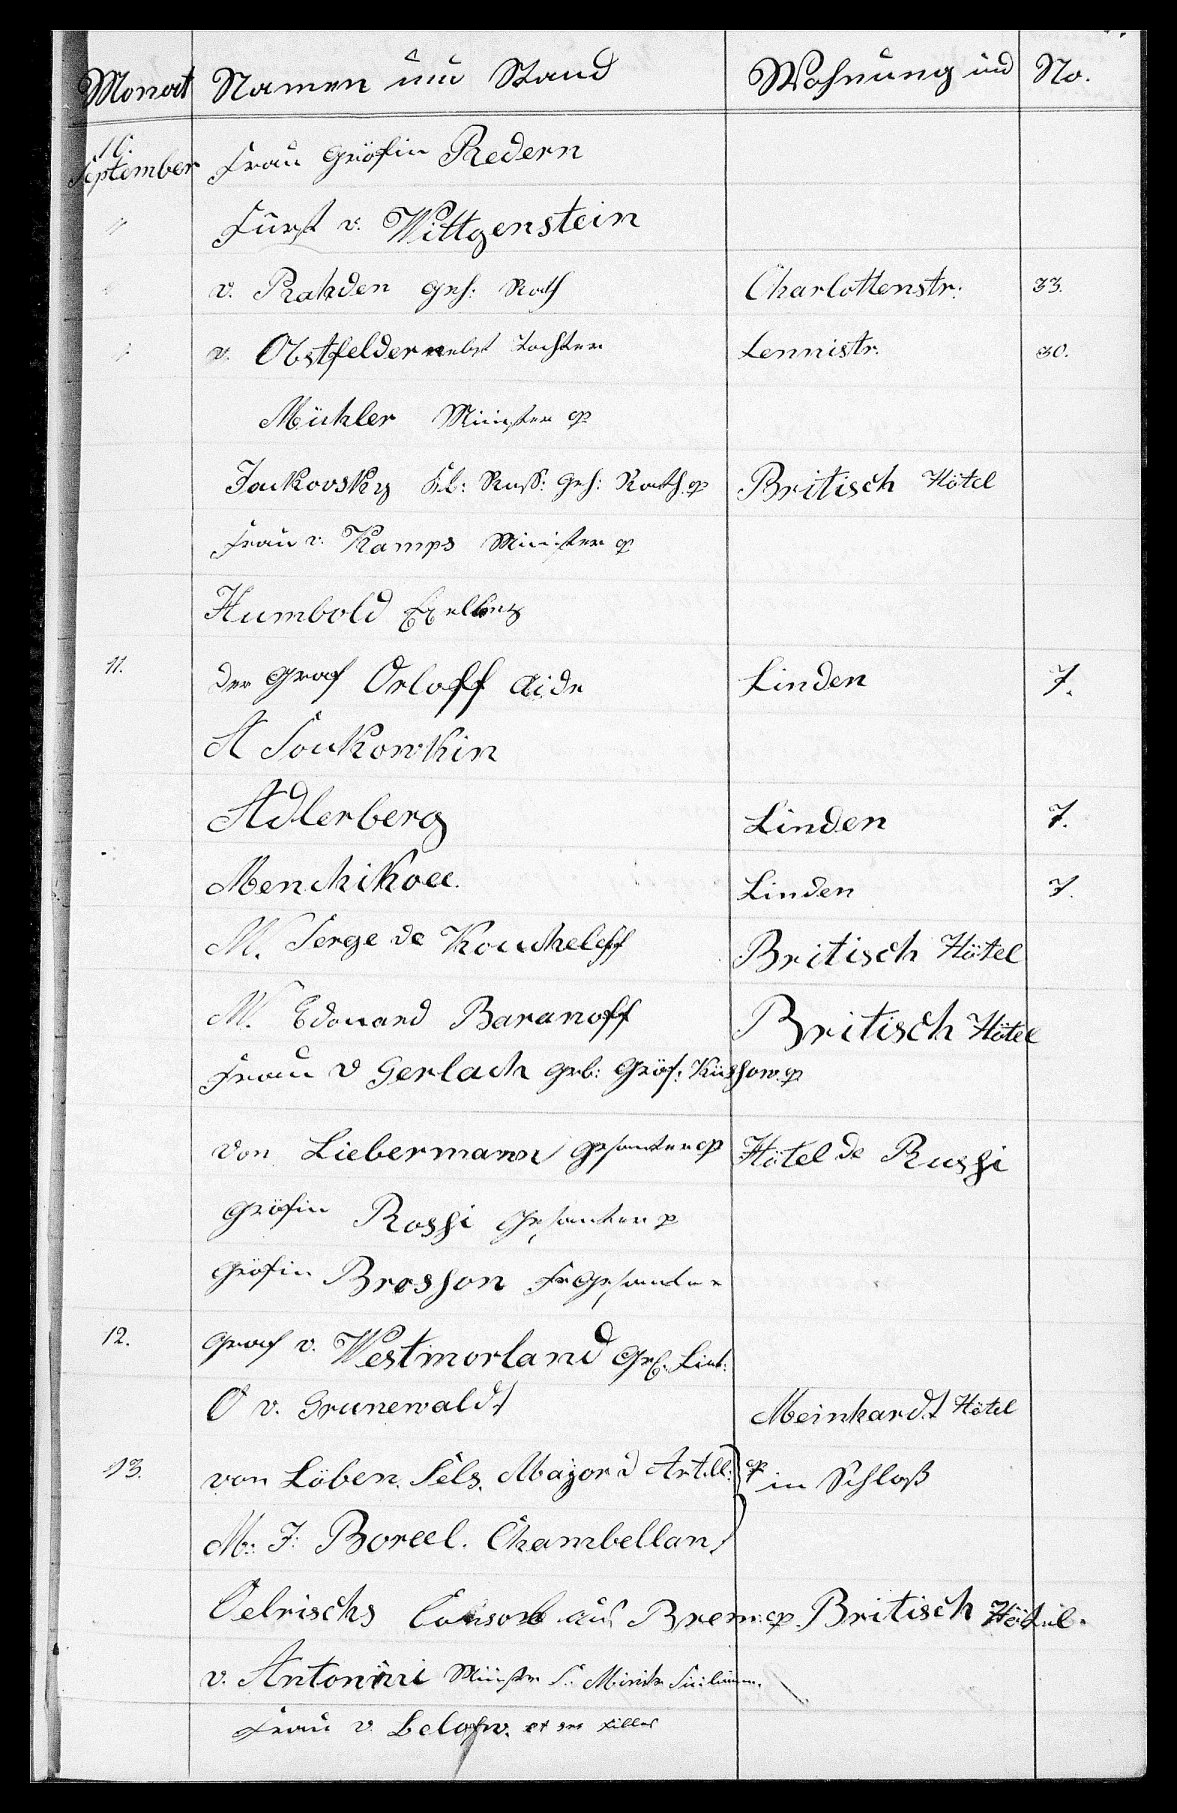 Monat Namen und Stand Wohnung und No.
10. September Frau Gräfin Redern
" Fürst v. Wittgenstein
" v. Rahden geh: Rath Charlottenstr: 33.
" v. Obstfelder nebst Tochter Lennistr. 30.
Mühler Minister
Joukovsky Russ: Geh: Rath Britisch Hôtel
Frau v. Kamps Minister
Humbold Exellenz
11. der Graf Orloff Aide Linden 7.
A Soukowkin
Adlerberg Linden 7.
Menchikoff Linden 7.
M. Serge de Koucheleff Britisch Hôtel
M. Edouard Baranoff Britisch Hôtel
Frau v Gerlach geb: Gräf: Küssow
von Liebermann Gesanter Hôtel de Russi
Gräfin Rossi Gesanten
Gräfin Brosson Gesandte
12. Graf v. Westmorland
O v. Grunewaldt Meinhardt Hôtel
13. von Löben Sels. Major d Artill: in Schloß
M: J: Boreel. Chambellan
Oelrischs Consorb aus Brem: Britisch Hôtel.
v. Antonini Minister
Frau v.